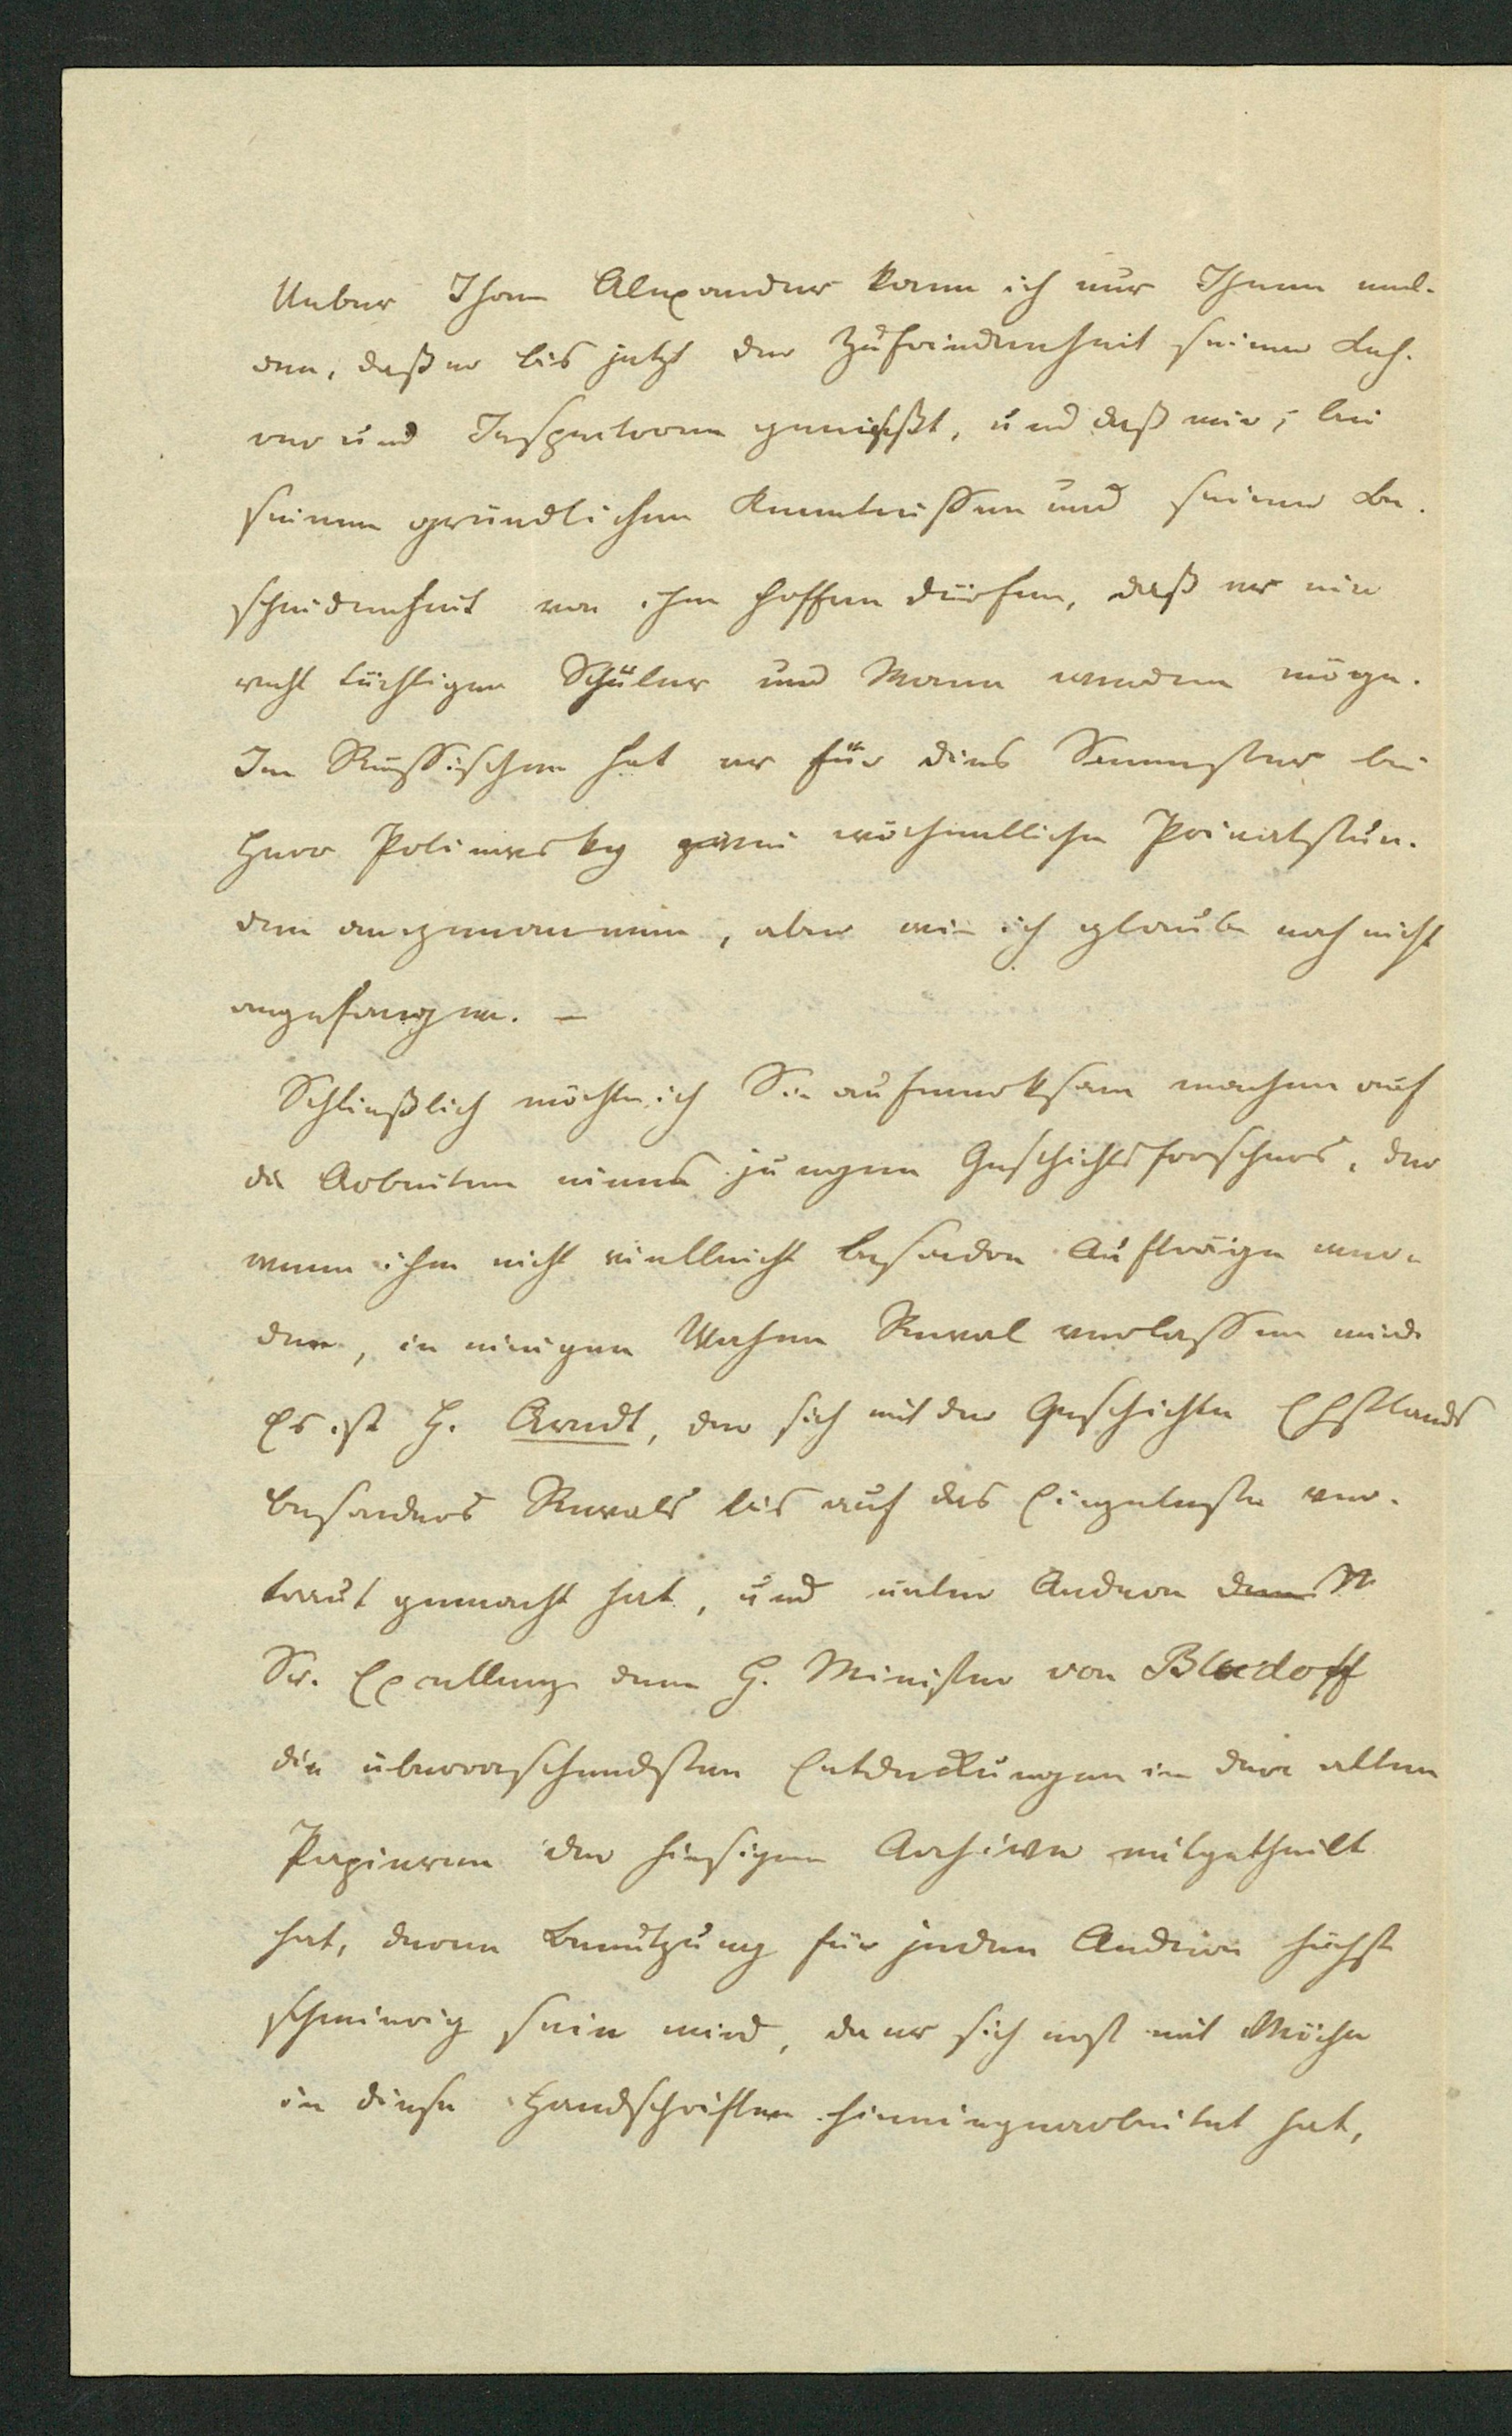 Ueber Ihren Alexander kann ich nur Ihnen mel-
den, daß er bis jetzt der Zufriedenheit seiner Leh-
rer und Inspectoren genießt, und daß wir, bei
seinen gründlichen Kenntnissen und seiner Be-
scheidenheit von ihm hoffen dürfen, daß er ein
recht tüchtiger Schüler und Mann werden möge.
Im Russischen hat er für dies Semester bei
Herr zwei wöchentliche Privatstun-
den angenommen, aber wie ich glaube noch nicht
angefangen. –
Schließlich möchte ich Sie aufmerksam machen auf
die Arbeiten eines jungen Geschichtsforschers, der
wenn ihm nicht vielleicht besondre Aufträge wer-
den, in einigen Wochen Reval verlassen wird.
Es ist H. Arndt, der sich mit der Geschichte Ehstlands
besonders Revals bis auf das Einzelnste ver-
traut gemacht hat, und unter Andern dem
Sr. Excellenz dem H. Minister von Bludoff
die überraschendsten Entdeckungen in den alten
Papieren der hiesigen Archive mitgetheilt
hat, deren Benutzung für jeden Andern höchst
schwierig sein wird, da er sich erst mit Mühe
in diese Handschriften hineingearbeitet hat,